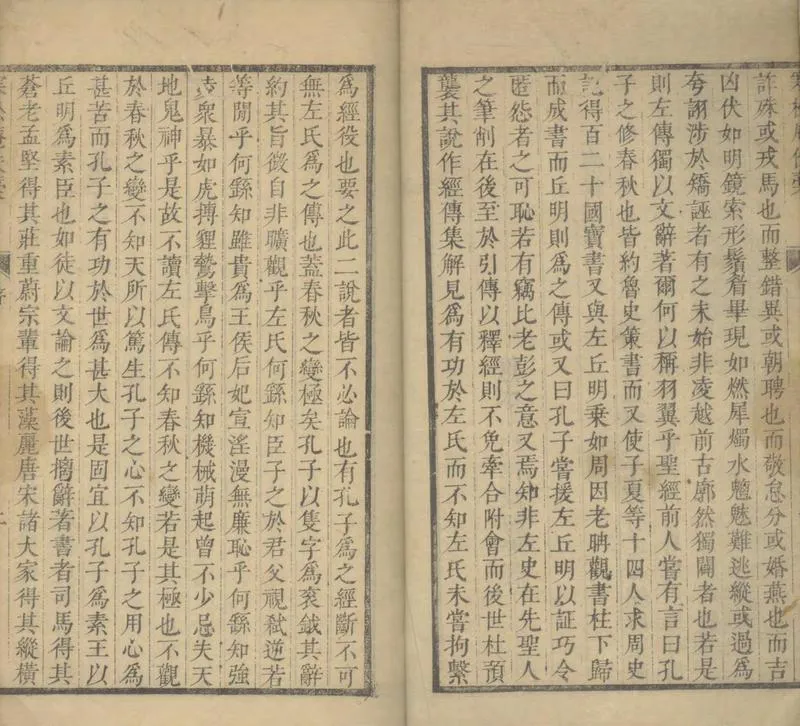 詐殊或戎馬也而整錯異或朝聘也而敬怠分或婚燕也而吉
凶伏如明鏡索形鬚眉畢現如燃犀燭水魑魅難逃縱或過爲
夸詡涉於矯誣者有之未始非凌越前古廓然獨闢者也若是
則左傳獨以文辭著爾何以稱羽翼乎聖經前人嘗有言曰孔
子之修春秋也皆約魯史策書而又使子夏等十四人求周史
記得百二十國寶書又與左丘明乗如周因老聃觀書柱下歸
而成書而丘明則爲之傳或又曰孔子嘗援左丘明以証巧令
匿怨者之可恥若有竊比老彭之意又焉知非左史在先聖人
之筆削在後至於引傳以釋經則不免牽合附會而後世杜預
襲其說作經傳集解見爲有功於左氏而不知左氏未嘗拘繫
爲經役也要之此二說者皆不必論也有孔子爲之經斷不可
無左氏爲之傳也蓋春秋之變極矣孔子以隻字爲衮鉞其辭
約其旨微自非曠觀乎左氏何繇知臣子之於君父視弒逆若
等閒乎何繇知雖貴爲王侯后妃宣淫漫無廉恥乎何繇知強
陵衆暴如虎搏貍鷙擊鳥乎何繇知機械萌起曾不少忌失天
地鬼神乎是故不讀左氏傳不知春秋之變若是其極也不觀
於春秋之變不知天所以篤生孔子之心不知孔子之用心爲
甚苦而孔子之有功於世爲甚大也是固宜以孔子爲素王以
丘明爲素臣也如徒以文論之則後世摛辭著書者司馬得其
蒼老孟堅得其莊重蔚宗輩得其藻麗唐宋諸大家得其縱橫
序
二